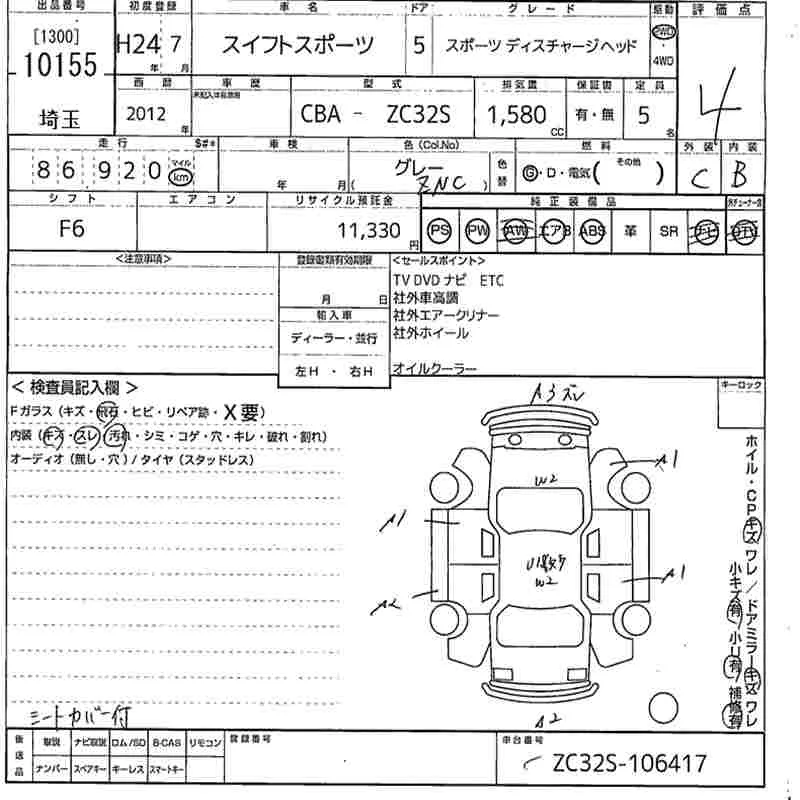 出品番号 初度登録 車 名 ドア グ レ ー ド 駆動 評 価 点
[1300]
10155
埼玉
H24 7
年 月
スイフトスポーツ
5
スポーツ ディスチャージヘッド
2WD
・
4WD
4
西 暦 車 歴 型 式 排気量 保証書 定 員
2012
年
CBA - ZC32S
1,580
CC
有・無
5
名
走 行 $#* 車 検 色 (Col.No) 燃 料 外 装 内 装
86920
マイル
km
年 月
グレー
( ZNC )
色替
G・D・電気( その他 )
C B
シ フ ト エ ア コ ン リサイクル預託金 純 正 装 備 品
F6
11,330
円
PS PW AW エアB ABS 革 SR ナビ DTV
<注意事項> 登録書類有効期限 <セールスポイント>
月 日
TV DVD ナビ ETC
社外車高調
輸 入 車
社外エアークリナー
社外ホイール
ディーラー・並行
左H ・ 右H
オイルクーラー
< 検査員記入欄 >
キーロック
Fガラス (キズ・飛石・ヒビ・リペア跡・X要)
内装 (キズ・スレ・汚れ・シミ・コゲ・穴・キレ・破れ・割れ)
オーディオ (無し・穴) / タイヤ (スタッドレス)
A3 ズレ
A1
W2
A1
W2
A1
A2
A2
ホイル・CPキズ ワレ / ドアミラーキズ ワレ
小キズ有 小U有 補修有
シートカバー付
後送品 取説 ナビ取説 ロム/SD B-CAS リモコン 登録番号 車台番号
ナンバー スペアキー キーレス スマートキー
ZC32S-106417